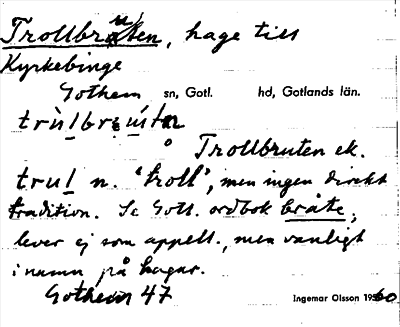 Trollbruten, hage till
Kyrkebinge
Gothem sn, Gotl. hd, Gotlands län.
Trollbruten ek.
trul n. 'troll', men ingen direkt
tradition. Se Gotl. ordbok bråte,
lever ej som appell., men vanligt
i namn på hagar.
Gothem 47 Ingemar Olsson 1960